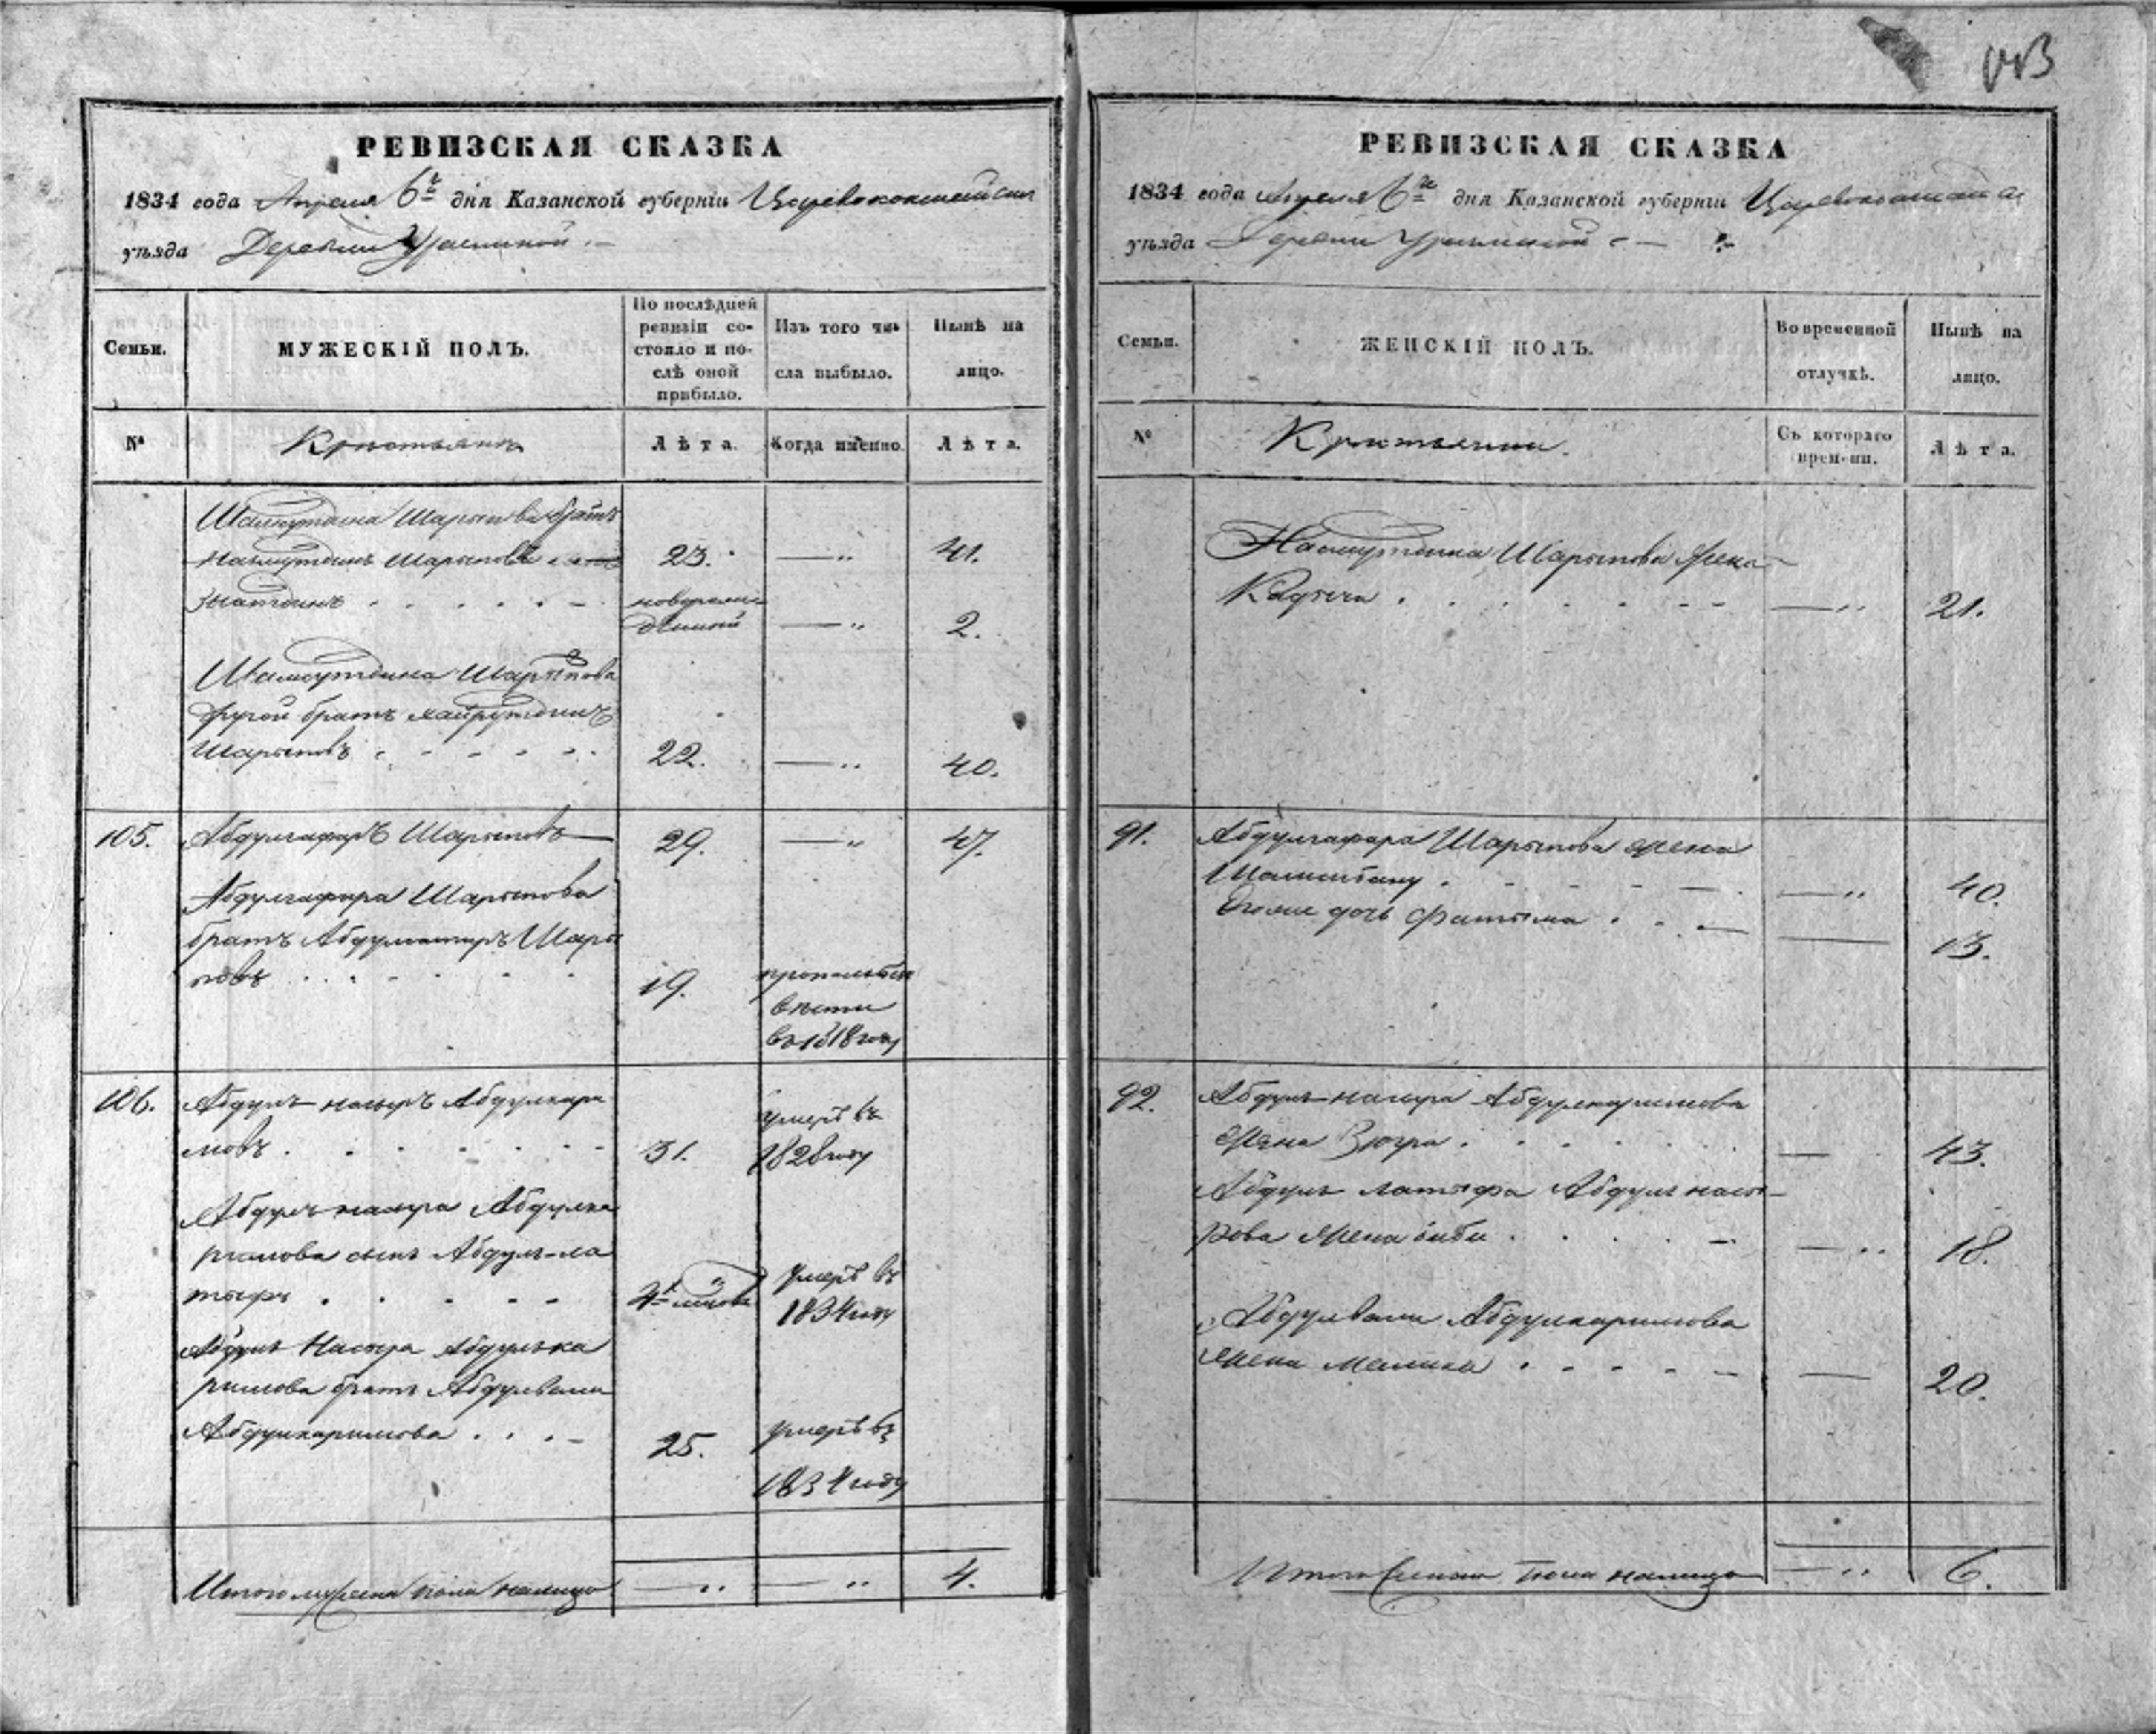 РЕВИЗСКАЯ СКАЗКА
1834 года Апреля 6го дня Казанской губерніи Царевококшайскаго
уѣзда Деревни
Семьи.
МУЖЕСКІЙ ПОЛЪ.
По послѣдней ревизіи состояло и послѣ оной прибыло.
Изъ того числа выбыло.
Нынѣ на лицо.
№
Крестьянъ
Лѣта.
Когда именно.
Лѣта.
Шамсутдина Шарыпова братъ
Шарыповъ 23. 41.
новорожденной 2.
Шамсутдина Шарыпова
другой братъ Хайрутдинъ
Шарыповъ 22. 40.
105. Абдулгафаръ Шарыповъ 29. 47.
Абдулгафара Шарыпова
братъ Шары
повъ 19. пропалъ безъ
вѣсти
въ 1818 году
106. Абдулъ насыръ Абдулкари
мовъ 31. умеръ въ
1828 году
Абдулъ насыра Абдулка
римова сынъ Абдулъ-ла
тыфъ умеръ въ
1834 году
Абдулъ Насыра Абдулъка
римова братъ Абдулвали
Абдулкаримова 25. умеръ въ
1834 году
Итого мужеска пола налицо 4.
РЕВИЗСКАЯ СКАЗКА
1834 года Апреля 6го дня Казанской губерніи Царевококшайскаго
уѣзда Деревни
Семьи.
ЖЕНСКІЙ ПОЛЪ.
Во временной отлучкѣ.
Нынѣ на лицо.
№
Съ котораго времени.
Лѣта.
Шарыпова жена
21.
91. Абдулгафара Шарыпова жена
40.
дочь Фатыма 13.
92. Абдулъ-насыра Абдулкаримова
жена Зюгра 43.
Абдулъ латыфа Абдулъ насы-
рова жена биби 18.
Абдулвали Абдулкаримова
жена Малика 20.
Итого женска пола налицо 6.